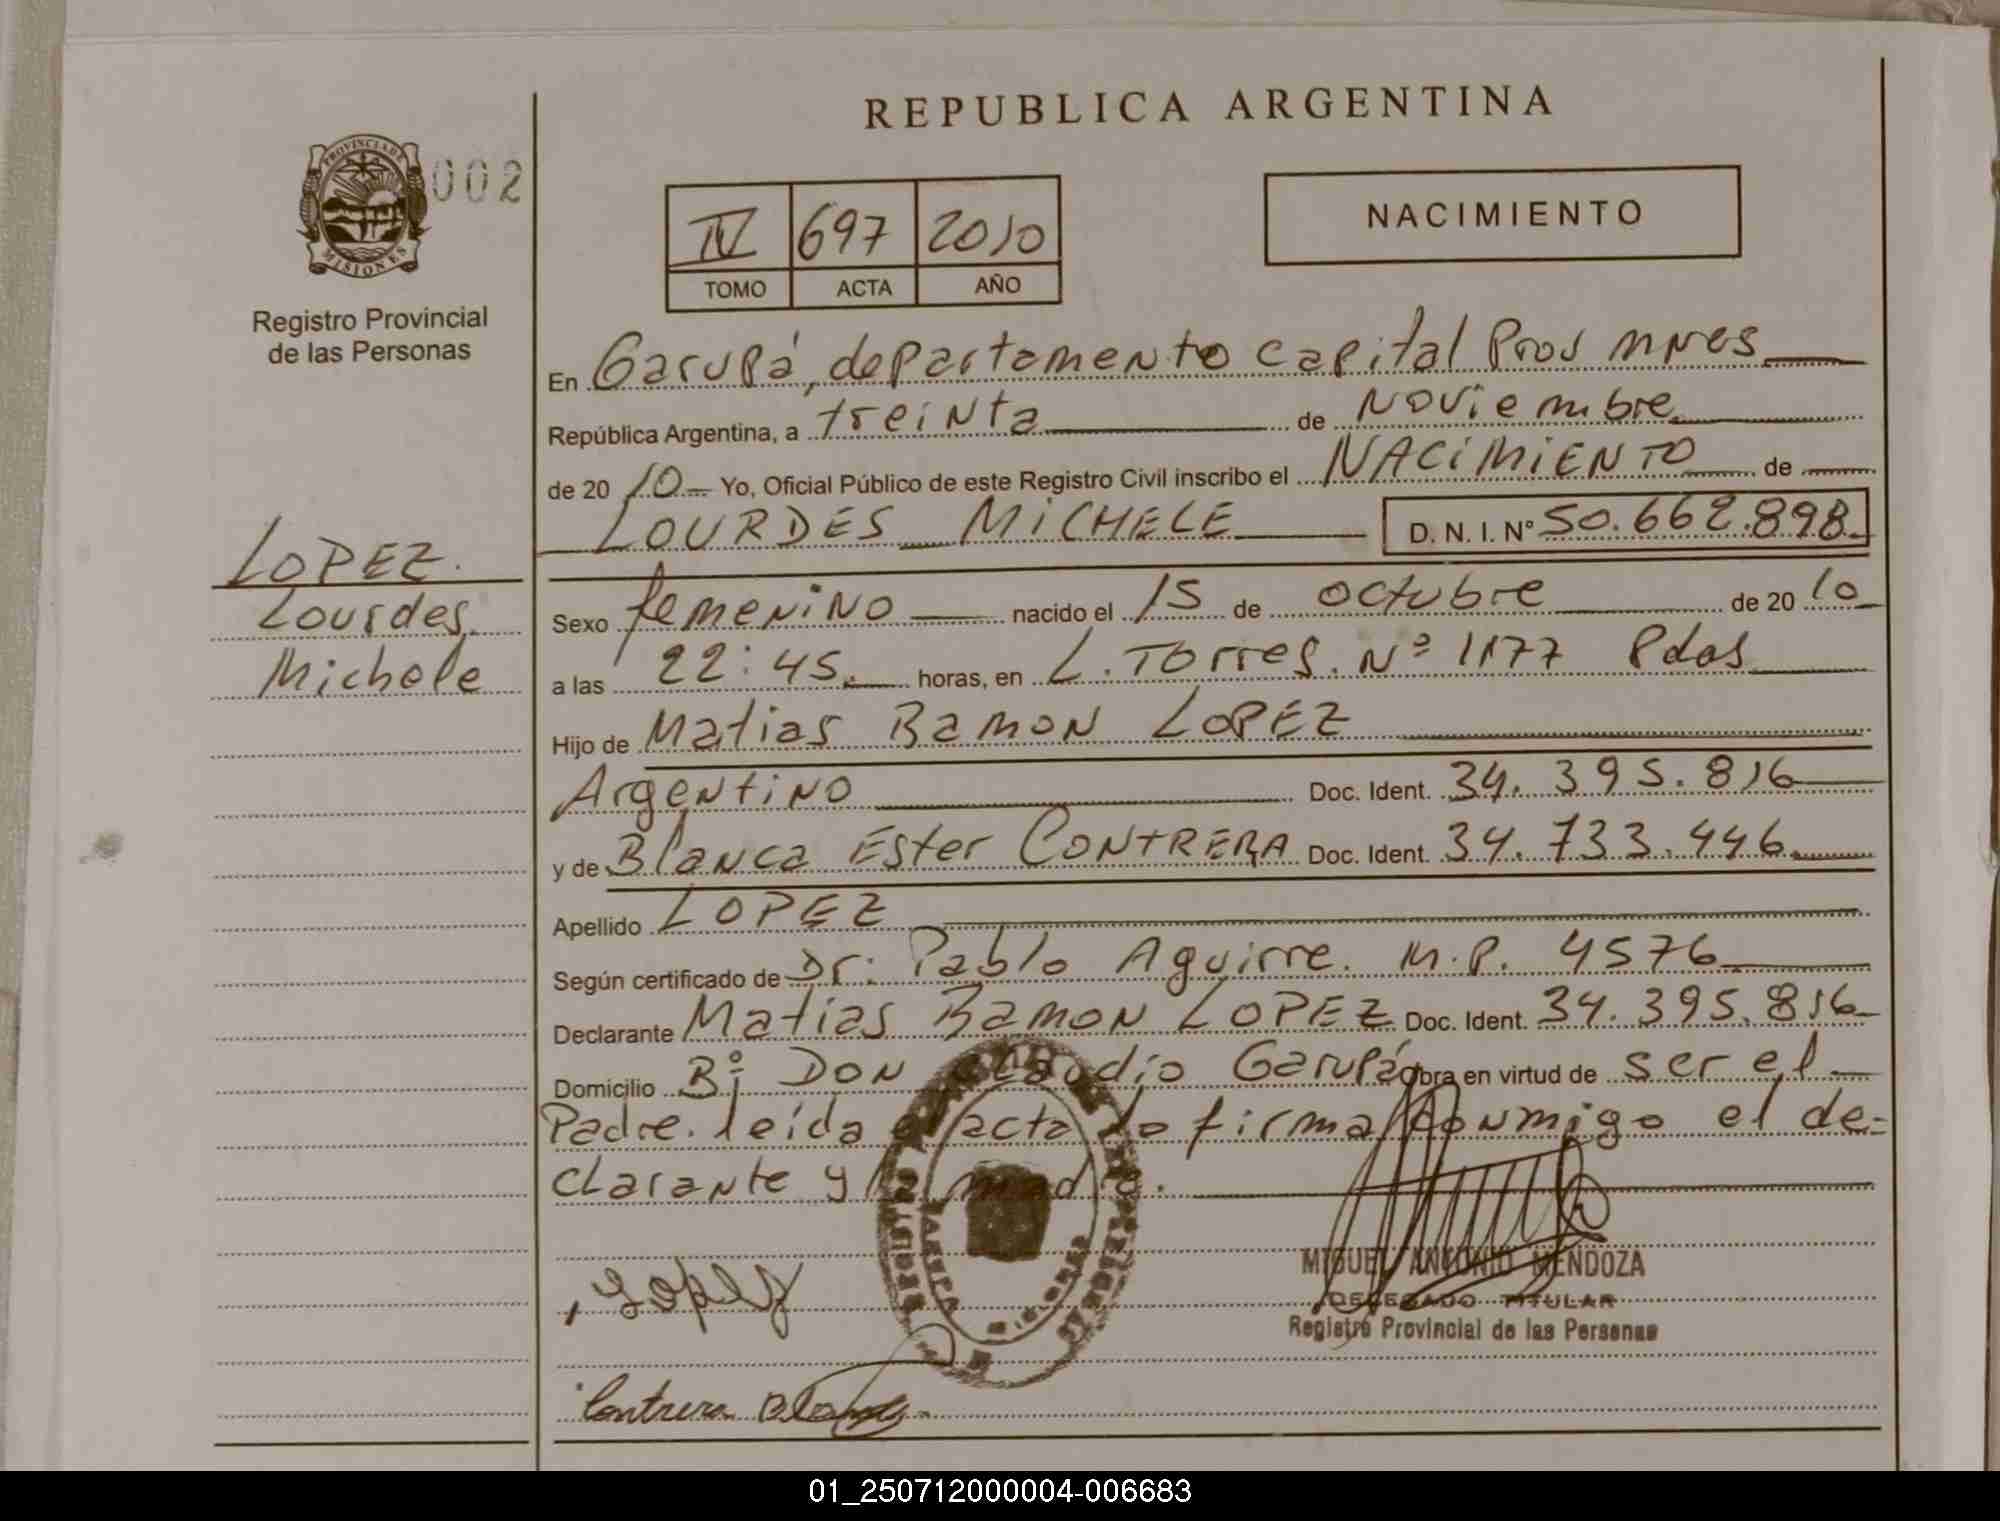 REPUBLICA ARGENTINA
PROVINCIA DE
MISIONES
002
Registro Provincial
de las Personas
IV 697 2010
TOMO ACTA AÑO
NACIMIENTO
En Garupá, departamento capital Prov mnes
República Argentina, a treinta de Noviembre
de 2010 Yo, Oficial Público de este Registro Civil inscribo el NACIMIENTO de
LOURDES MICHELE D. N. I. Nº 50.662.898
LOPEZ.
Lourdes
Michele
Sexo femenino nacido el 15 de octubre de 2010
a las 22:45. horas, en L. Torres. Nº 1177 Pdas
Hijo de Matias Ramon LOPEZ
Argentino Doc. Ident. 34.395.816
y de Blanca Ester CONTRERA Doc. Ident. 34.733.446
Apellido LOPEZ
Según certificado de Dr: Pablo Aguirre. M.P. 4576
Declarante Matias Ramon LOPEZ Doc. Ident. 34.395.816
Domicilio Bº DON Claudio Garupá obra en virtud de ser el
Padre. leída el acta lo firma conmigo el de-
clarante y la madre.
Lopez
MIGUEL ANTONIO MENDOZA
DELEGADO TITULAR
Registro Provincial de las Personas
Contrera Blanca
01_250712000004-006683